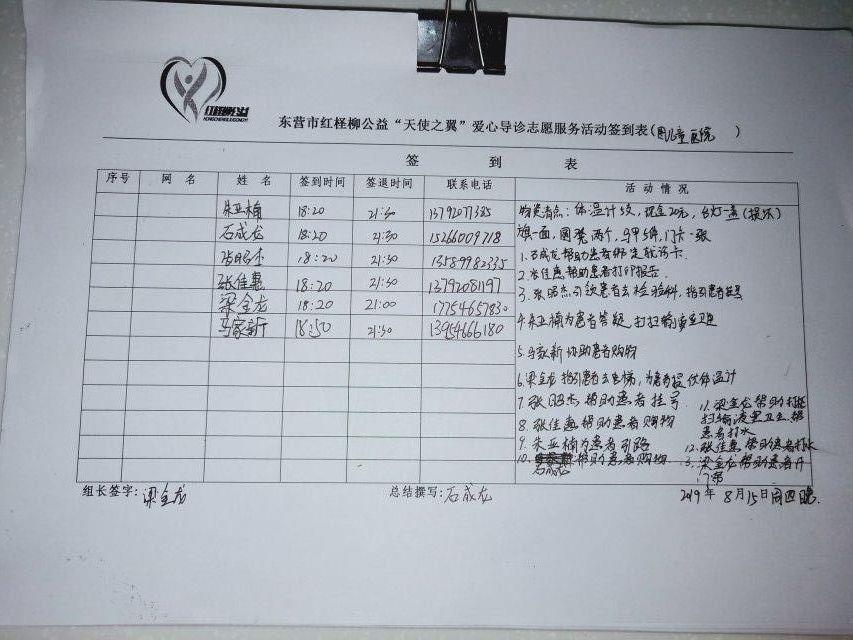 红柽柳公益
东营市红柽柳公益“天使之翼”爱心导诊志愿服务活动签到表(儿童医院)
签 到 表
序号 网 名 姓 名 签到时间 签退时间 联系电话 活 动 情 况
朱亚楠 18:20 21:30 13792077385
石成龙 18:20 21:30 15266009718
张昭杰 18:20 21:30 13589982335
张佳惠 18:20 21:30 13792081197
梁金龙 18:20 21:00 17754657830
马家新 18:50 21:30 13954666180
物资清点:体温计5支,现金20元,台灯一盏(损坏)
旗一面,圆凳两个,马甲5件,门卡一张
1.石成龙帮助患者绑定就诊卡.
2.张佳惠帮助患者打印报告.
3.张昭杰引领患者去检验科,指引患者
4.朱亚楠为患者答疑,打扫输液室卫生
5.马家新协助患者购物
6.梁金龙指引患者去电梯,为患者提供体温计
7.张昭杰帮助患者挂号
8.张佳惠帮助患者购物
9.朱亚楠为患者引路
10.石成龙帮助患者购物
11.梁金龙帮助打扫
扫输液室卫生,帮
患者打水
12.张佳惠帮助患者打水
3.梁金龙帮助患者开
门帘
组长签字:梁金龙 总结撰写:石成龙 2019年8月15日周四晚.